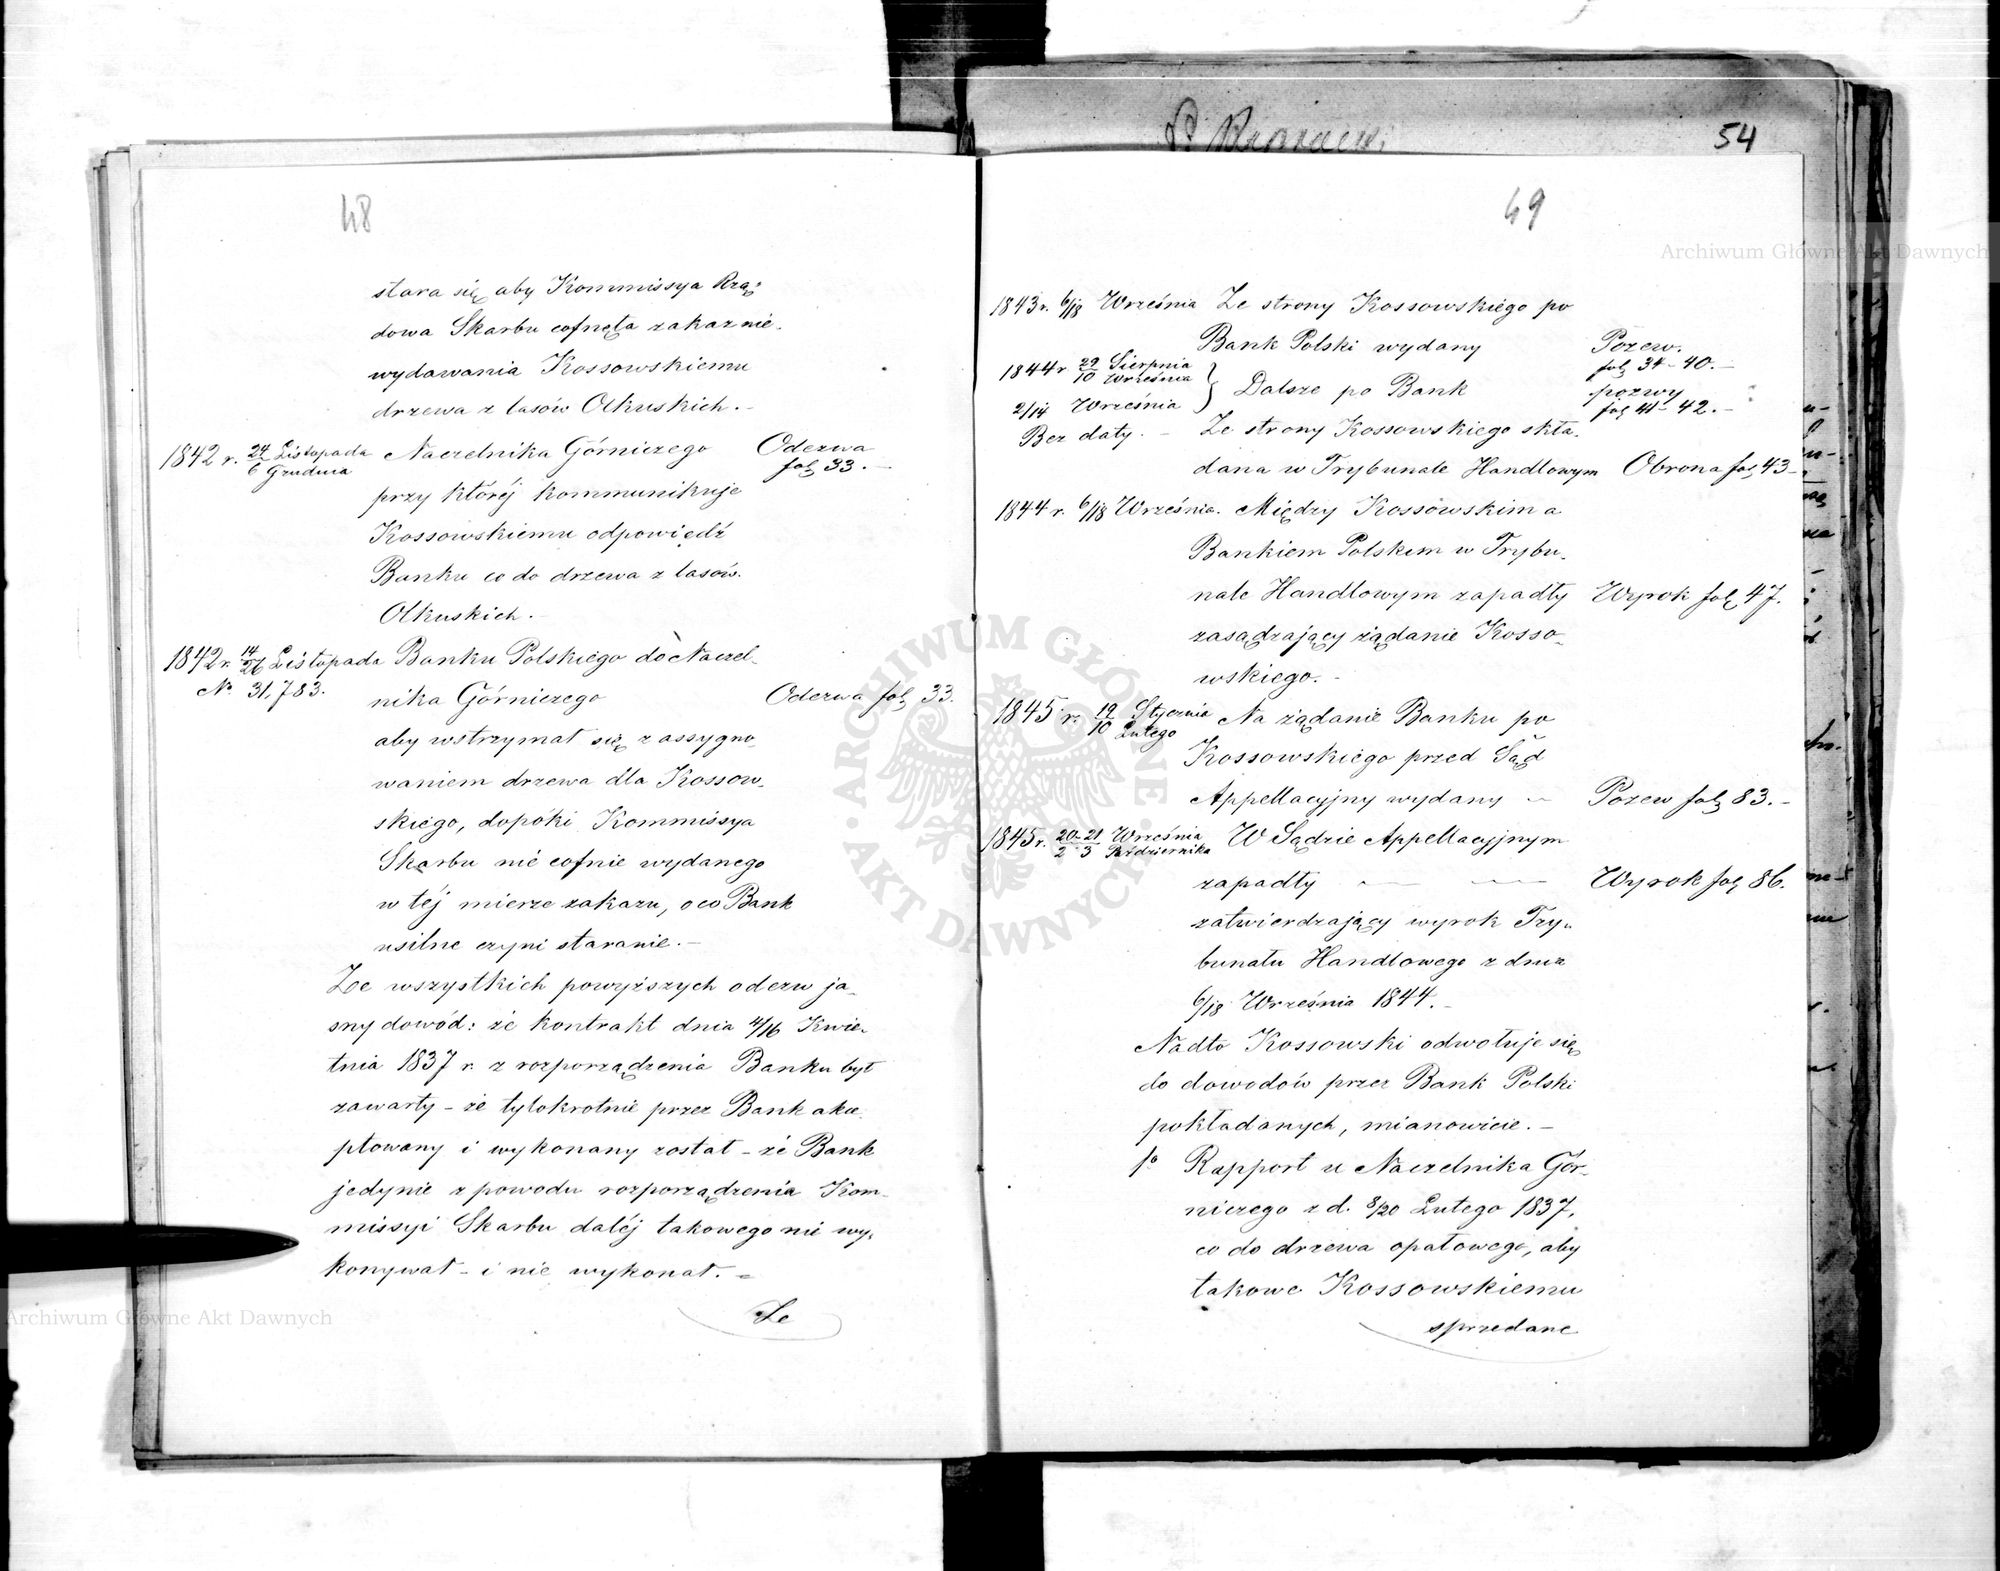 48
stara się aby Kommissya Rzą-
dowa Skarbu cofnęła zakaz nie-
wydawania Kossowskiemu
drzewa z lasów Olkuskich. -
1842 r. 24/6 Listopada Grudnia Naczelnika Górniczego Odezwa fol. 33. -
przy której kommunikuje
Kossowskiemu odpowiedź
Banku co do drzewa z lasów
Olkuskich. -
1842 r. 14/26 Listopada Banku Polskiego do Naczel-
No 31,783. nika Górniczego Odezwa fol. 33.
aby wstrzymał się z assygno-
waniem drzewa dla Kossow-
skiego, dopóki Kommissya
Skarbu nie cofnie wydanego
w téj mierze zakazu, o co Bank
usilne czyni staranie. -
Ze wszystkich powyższych odezw ja-
sny dowód: że kontrakt dnia 4/16 Kwie-
tnia 1837 r. z rozporządzenia Banku był
zawarty - że tylokrotnie przez Bank akce-
ptowany i wykonany został - że Bank
jedynie z powodu rozporządzenia Kom-
missyi Skarbu daléj takowego nie wy-
konywał - i nie wykonał. =
Ze
54
49
1843 r. 6/18 Września Ze strony Kossowskiego po
Bank Polski wydany Pozew. fol. 34 - 40. -
1844 r 29/10 Sierpnia Września
2/14 Września } Dalsze po Bank pozwy fol. 41 - 42. -
Bez daty. - Ze strony Kossowskiego skła-
dana w Trybunale Handlowym Obrona fol. 43 -
1844 r. 6/18 Września. Między Kossowskim a
Bankiem Polskim w Trybu-
nale Handlowym zapadły Wyrok fol. 47.
zasądzający żądanie Kosso-
wskiego. -
1845 r. 19/10 Stycznia Lutego Na żądanie Banku po
Kossowskiego przed Sąd
Appellacyjny wydany - Pozew fol. 83. -
1845 r. 20-21/2-3 Września Października W Sądzie Appellacyjnym
zapadły — — Wyrok fol. 86.
zatwierdzający wyrok Try-
bunału Handlowego z dnia
6/18 Września 1844. -
Nadto Kossowski odwołuje się
do dowodów przez Bank Polski
pokładanych, mianowicie. -
1o Rapport u Naczelnika Gór-
niczego z d. 8/20 Lutego 1837.
co do drzewa opałowego, aby
takowe Kossowskiemu
sprzedane
Archiwum Główne Akt Dawnych
Archiwum Główne Akt Dawnych
ARCHIWUM GŁÓWNE AKT DAWNYCH